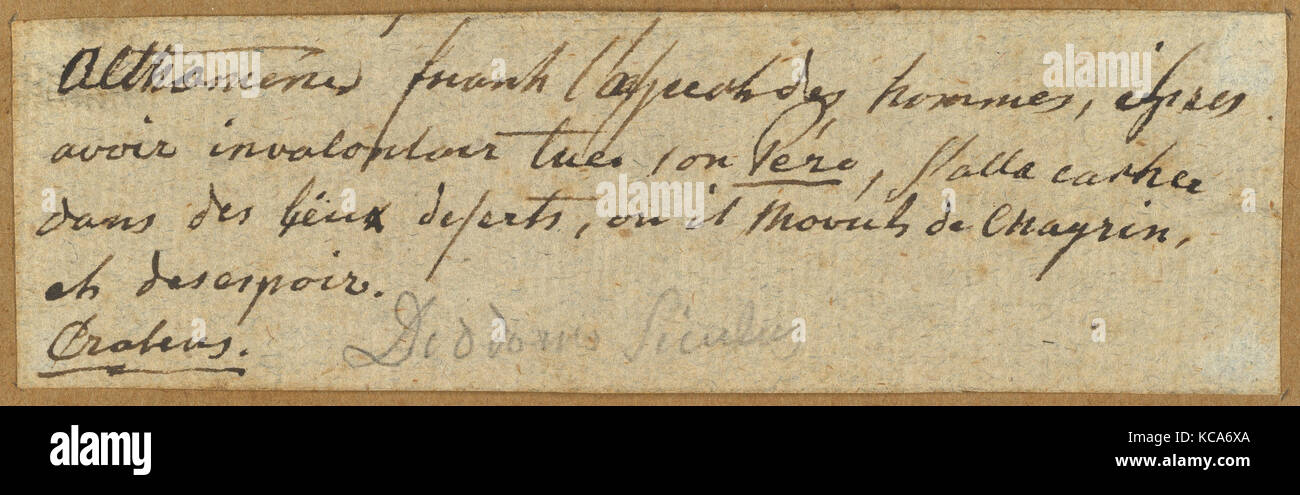 Althomenes fuiant l'aspect des hommes, apres
avoir involontair tuer son Pere, s'alla cacher
dans des lieux deserts, ou il Mourut de Chagrin,
et desespoir.
Crateus. Diodorus Siculus
alamy stock photo
KCA6XA
www.alamy.com